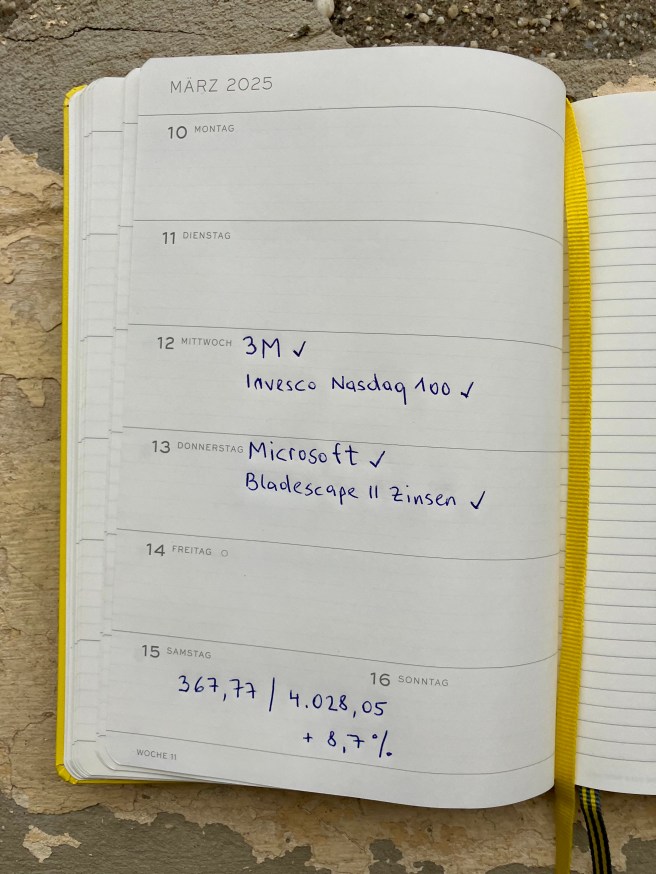 MÄRZ 2025
10 MONTAG
11 DIENSTAG
12 MITTWOCH 3M ✓
Invesco Nasdaq 100 ✓
13 DONNERSTAG Microsoft ✓
Bladescape II Zinsen ✓
14 FREITAG ○
15 SAMSTAG
16 SONNTAG
367,77 | 4.028,05
+ 8,7%
WOCHE 11